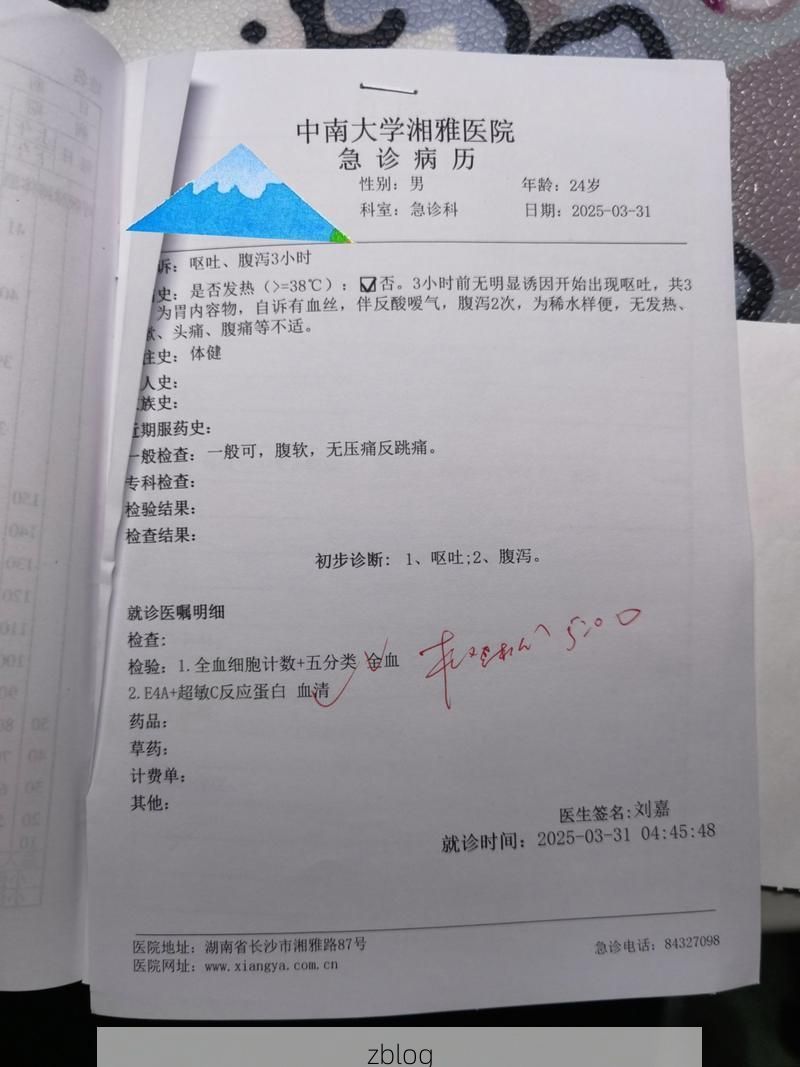 中南大学湘雅医院
急诊病历
性别：男 年龄：24岁
科室：急诊科 日期：2025-03-31
诉：呕吐、腹泻3小时
史：是否发热（>=38℃）：☑否。3小时前无明显诱因开始出现呕吐，共3
为胃内容物，自诉有血丝，伴反酸嗳气，腹泻2次，为稀水样便，无发热、
、头痛、腹痛等不适。
往史：体健
人史：
族史：
近期服药史：
一般检查：一般可，腹软，无压痛反跳痛。
专科检查：
检验结果：
检查结果：
初步诊断：1、呕吐;2、腹泻。
就诊医嘱明细
检查：
检验：1.全血细胞计数+五分类 全血
2.E4A+超敏C反应蛋白 血清
药品：
草药：
计费单：
其他：
医生签名:刘嘉
就诊时间：2025-03-31 04:45:48
医院地址：湖南省长沙市湘雅路87号 急诊电话：84327098
医院网址：www.xiangya.com.cn
zblog